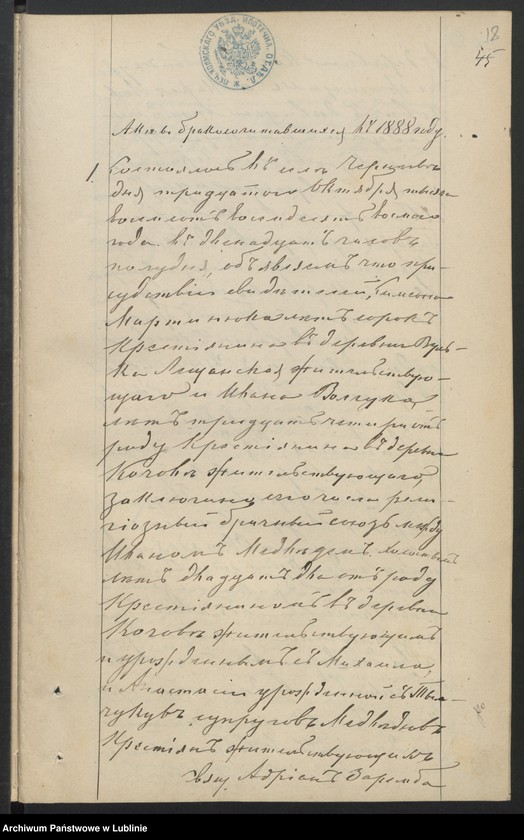 18
45
Ж. ПЕЧ. ХОЛМСКАГО УѢЗД. ИПОТЕЧН. ОТДѢЛ.
Актъ бракосочитавшихся къ 1888 году.
1. Состоялось въ селѣ
дня тридцатого Октября тысяча
восемсотъ восемдесятъ восмого
года. въ двенадцать часовъ
полудня, объявляемъ что при-
судствіи свидѣтелей, Симеона
Мартинюка лѣтъ сорокъ
Крестіянина въ деревни Вуль-
ка Лещанская жительствую-
щаго и Ивана Волчука
лѣтъ тридцать четыри отъ
роду Крестіянина въ деревни
Кочовъ жительствующаго,
заключину сего числа рели-
гіозный брачный союзъ между
Иваномъ Медвѣдемъ, холостымъ
лѣтъ двадцать два отъ роду
Крестіяниномъ въ деревни
Кочовъ жительствующимъ
и урожденнымъ съ Михаила,
и Анастасіи урожденной съ
супруговъ Медвѣдювъ
Крестіянъ жительствующимъ
Адріанъ Заремба
Archiwum Państwowe w Lublinie